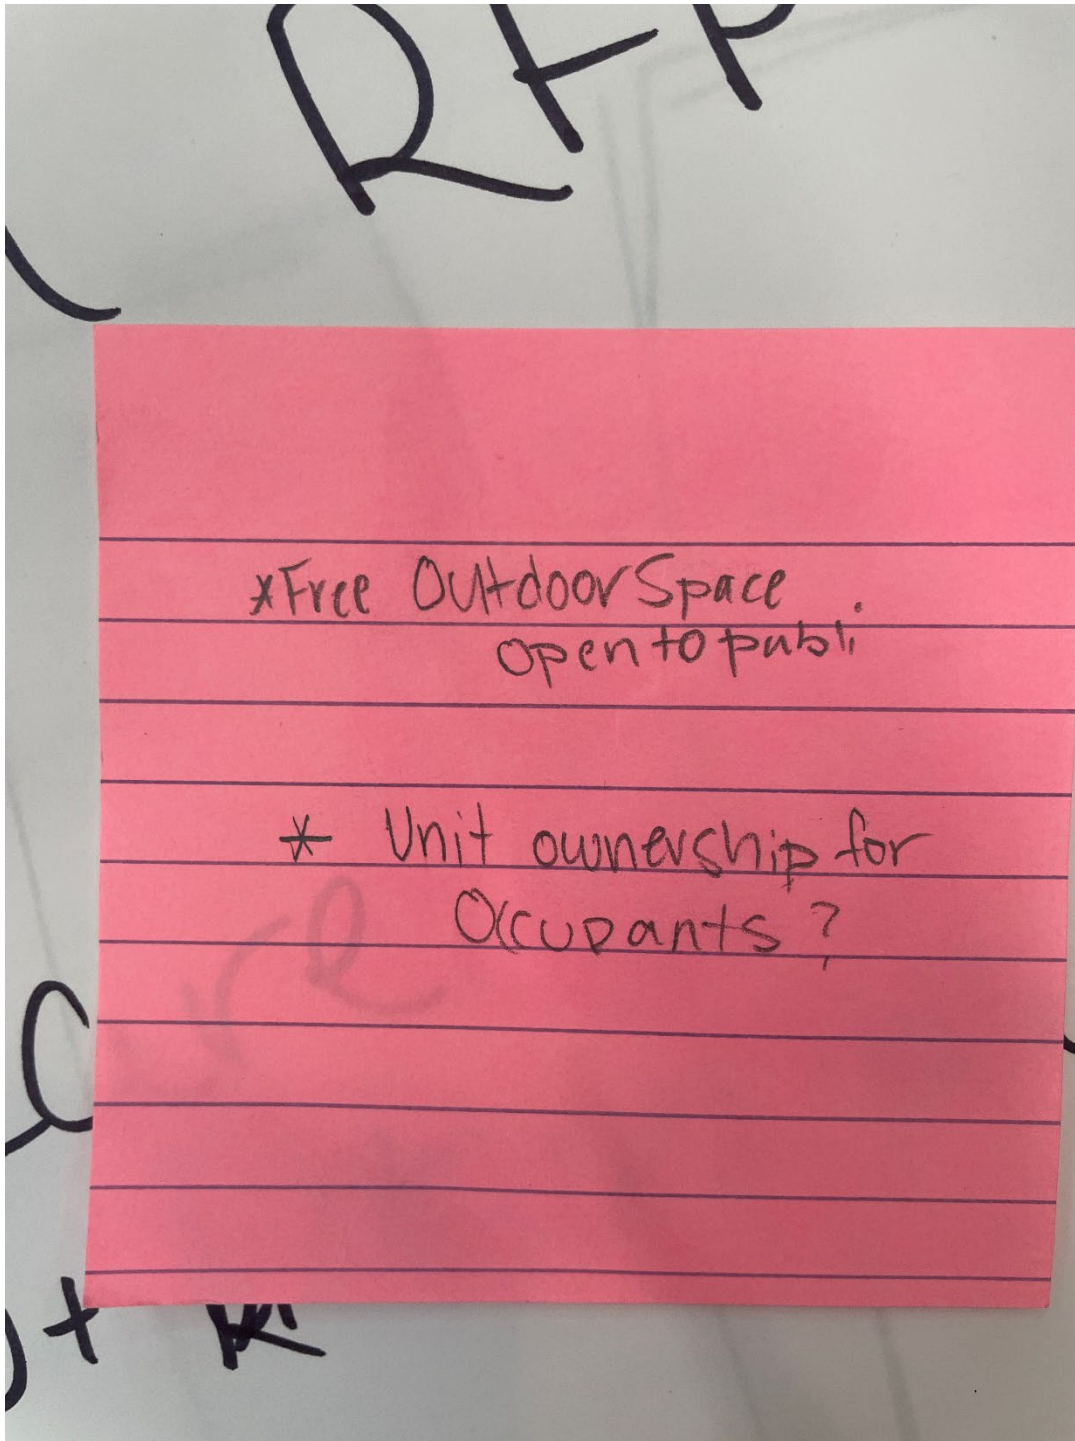 RFP
*Free Outdoor Space
open to publi
* Unit ownership for
Occupants?